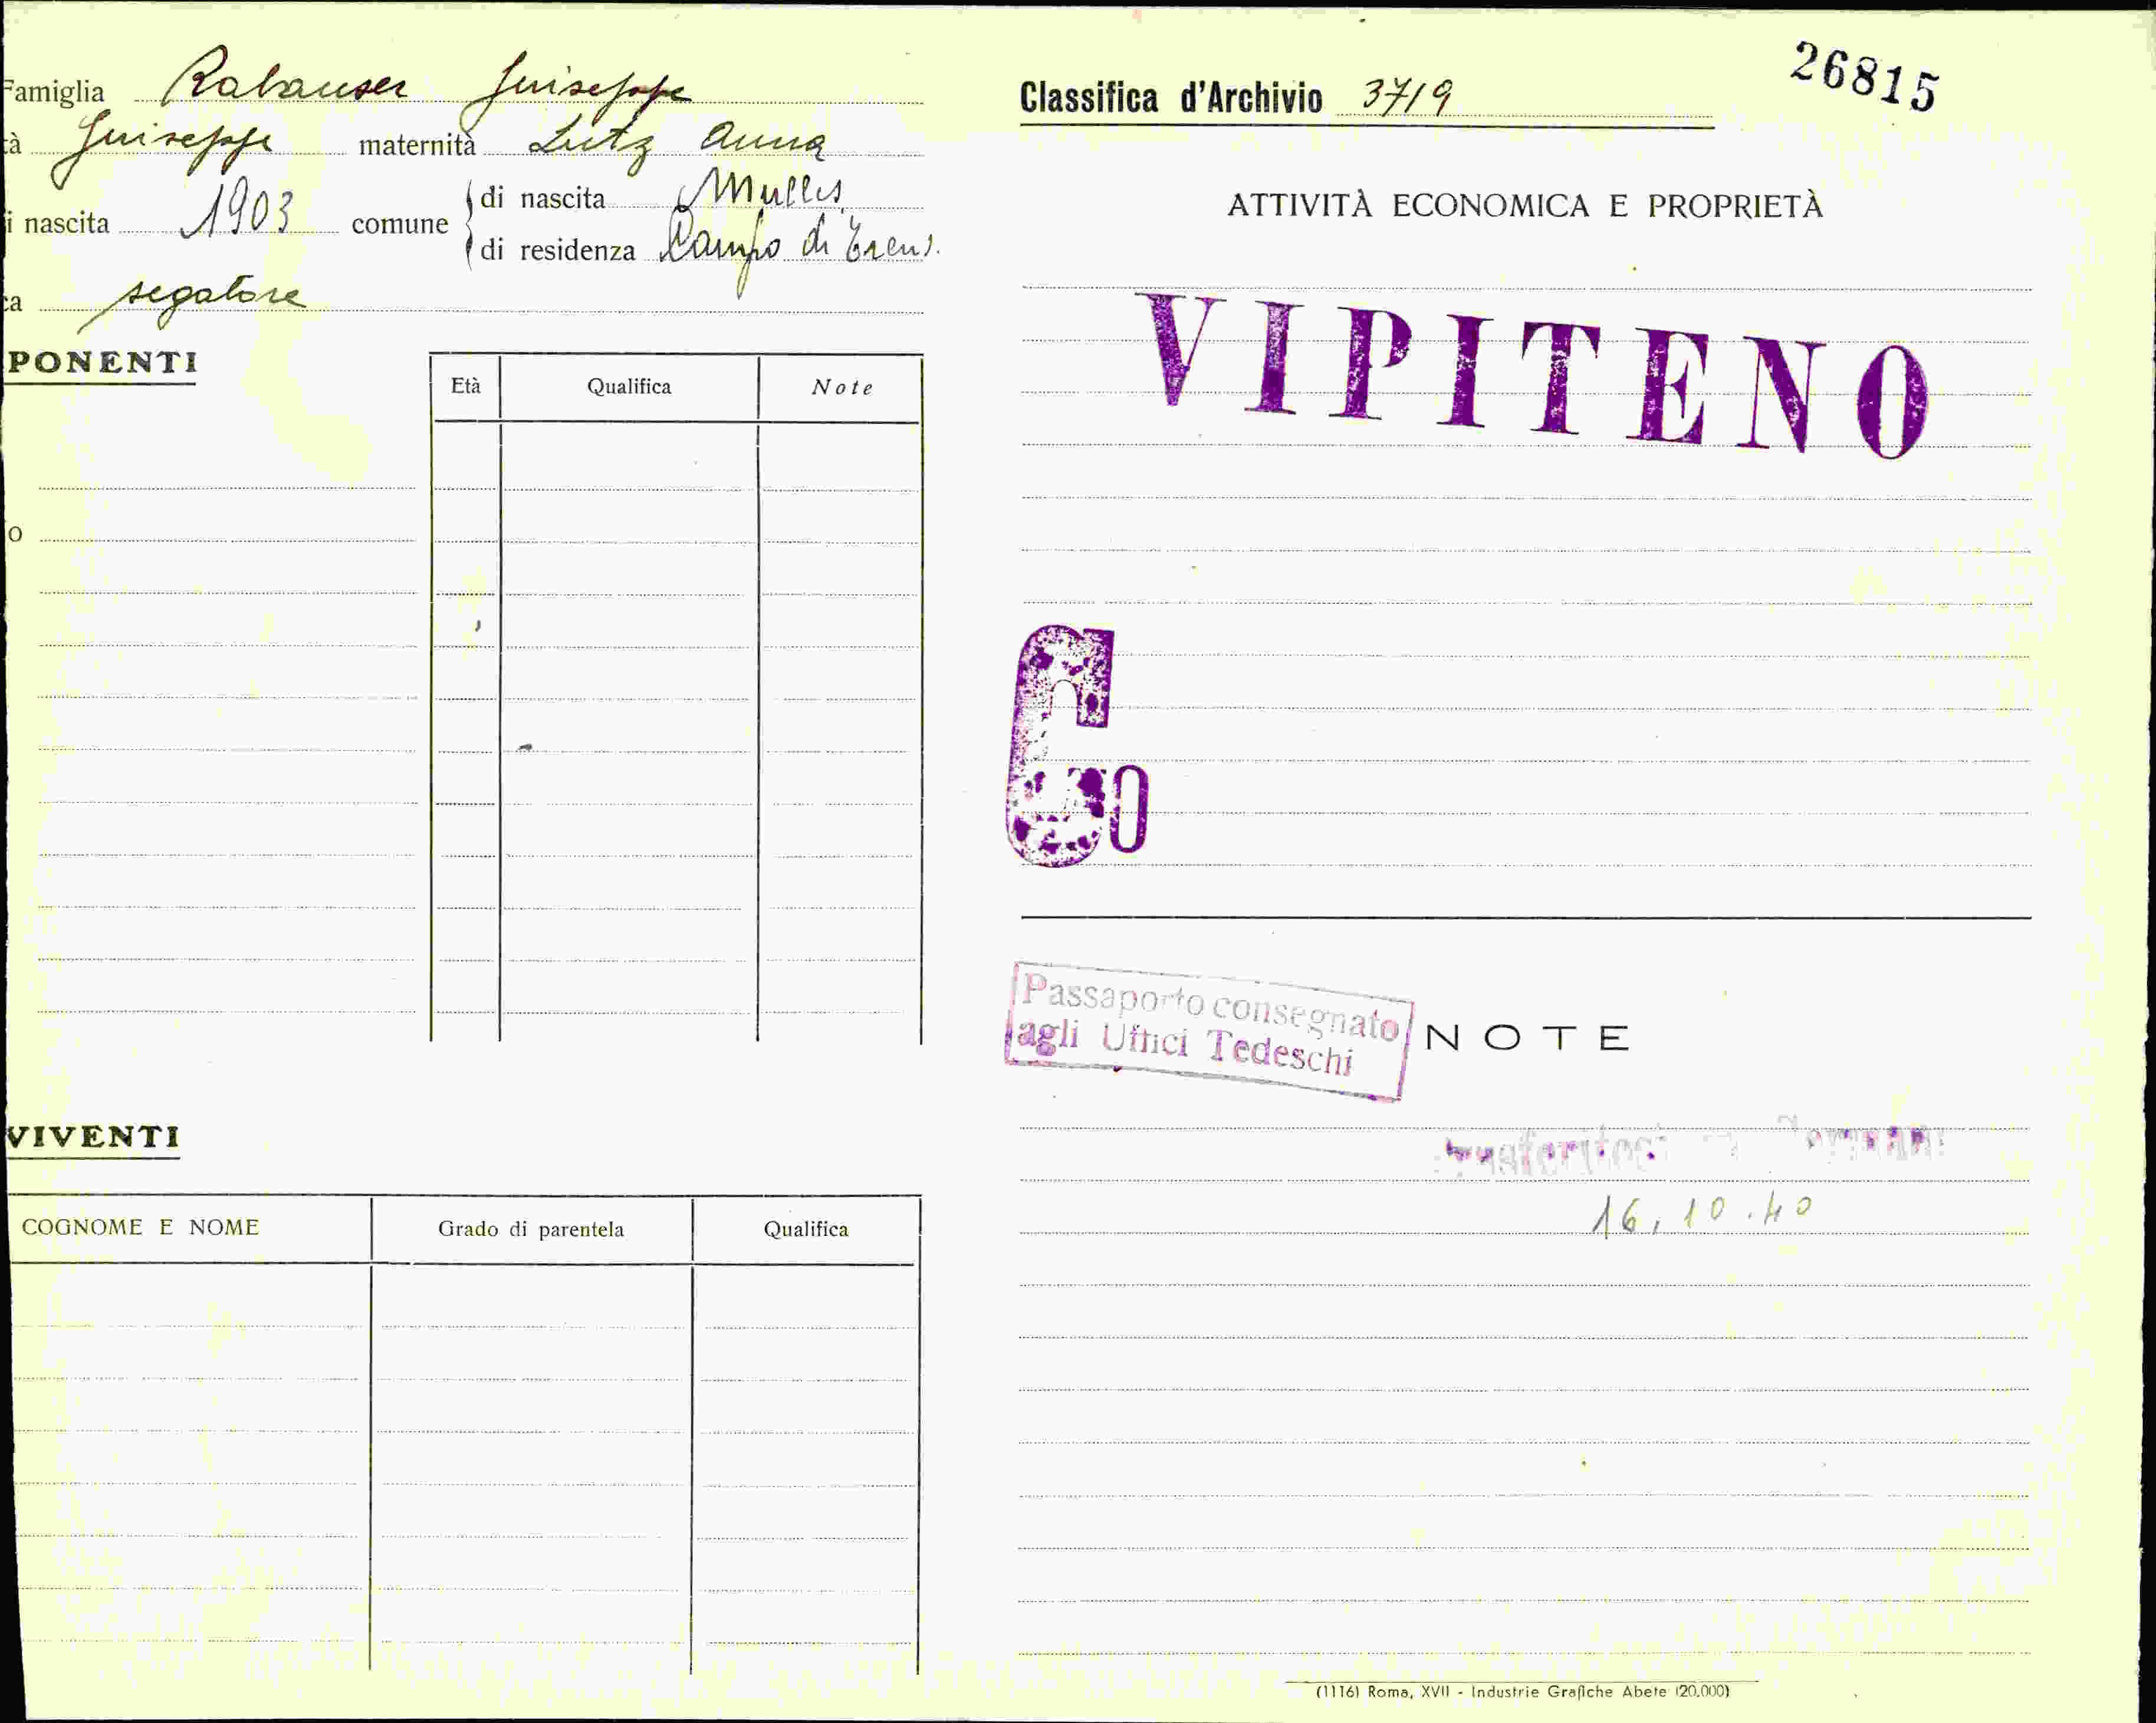 Famiglia Rabanser Giuseppe
tà Giuseppe maternità Lutz Anna
i nascita 1903 comune di nascita Mulles
di residenza Campo di Trens.
ca segatore
PONENTI
Età Qualifica Note
o
VIVENTI
COGNOME E NOME Grado di parentela Qualifica
Classifica d'Archivio 3719
26815
ATTIVITÀ ECONOMICA E PROPRIETÀ
VIPITENO
G
0
Passaporto consegnato
agli Uffici Tedeschi
NOTE
16.10.40
(1116) Roma, XVII - Industrie Grafiche Abete (20.000)